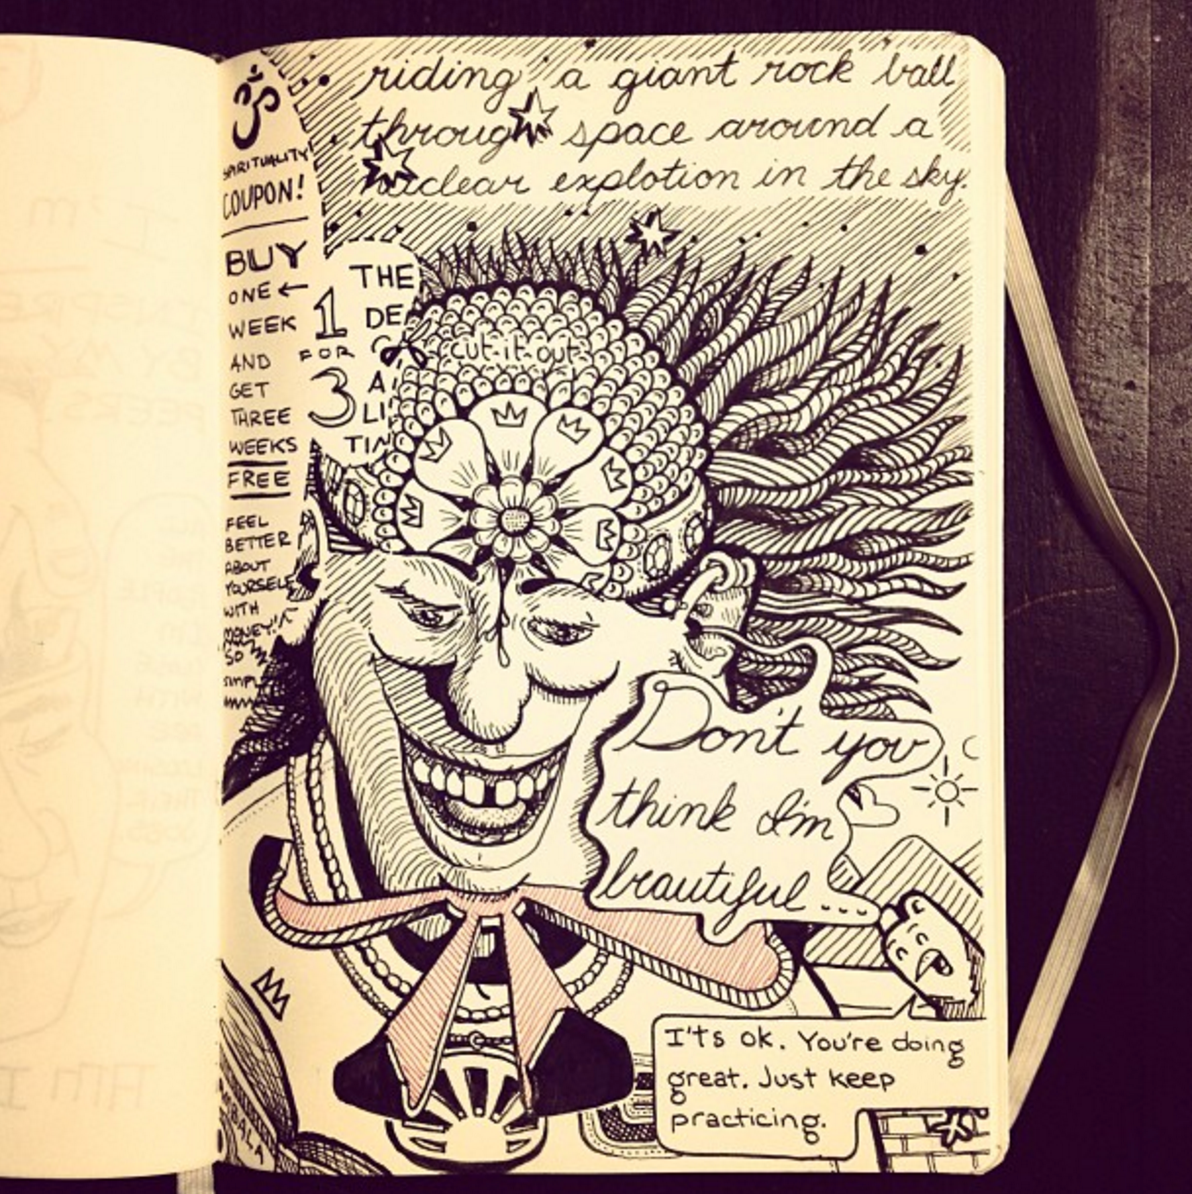 riding a giant rock ball
through space around a
nuclear explotion in the sky.
ॐ
SPIRITUALITY
COUPON!
BUY
ONE ←
WEEK
AND
GET
THREE
WEEKS
FREE
FEEL
BETTER
ABOUT
YOURSELF
WITH
MONEY!
SO
SIMPLE
THE
1 DE
FOR
3 A
LI
TIN
cut it out
Don't you
think I'm
beautiful....
I'ts ok. You're doing
great. Just keep
practicing.